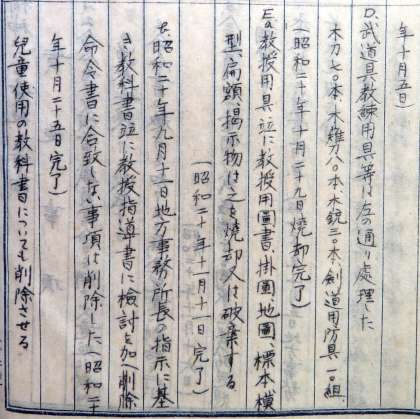 年十月五日)
D. 武道具教練用具等は左の通り処理した
木刀七〇本、木薙刀八〇本、木銃三〇本、剣道用防具一〇組
(昭和二十年十月二十九日焼却完了)
E. 教授用具並に教授用圖書、掛圖、地圖、標本模
型、扁額、掲示物は之を焼却又は破棄する
(昭和二十年十一月十一日完了)
昭和二十年九月十二日地方事務所長の指示に基
き教科書並に教授指導書に検討を加へ削除
命令書に合致しない事項は削除した(昭和二十
年十月二十五日完了)
兒童使用の教科書についても削除させる